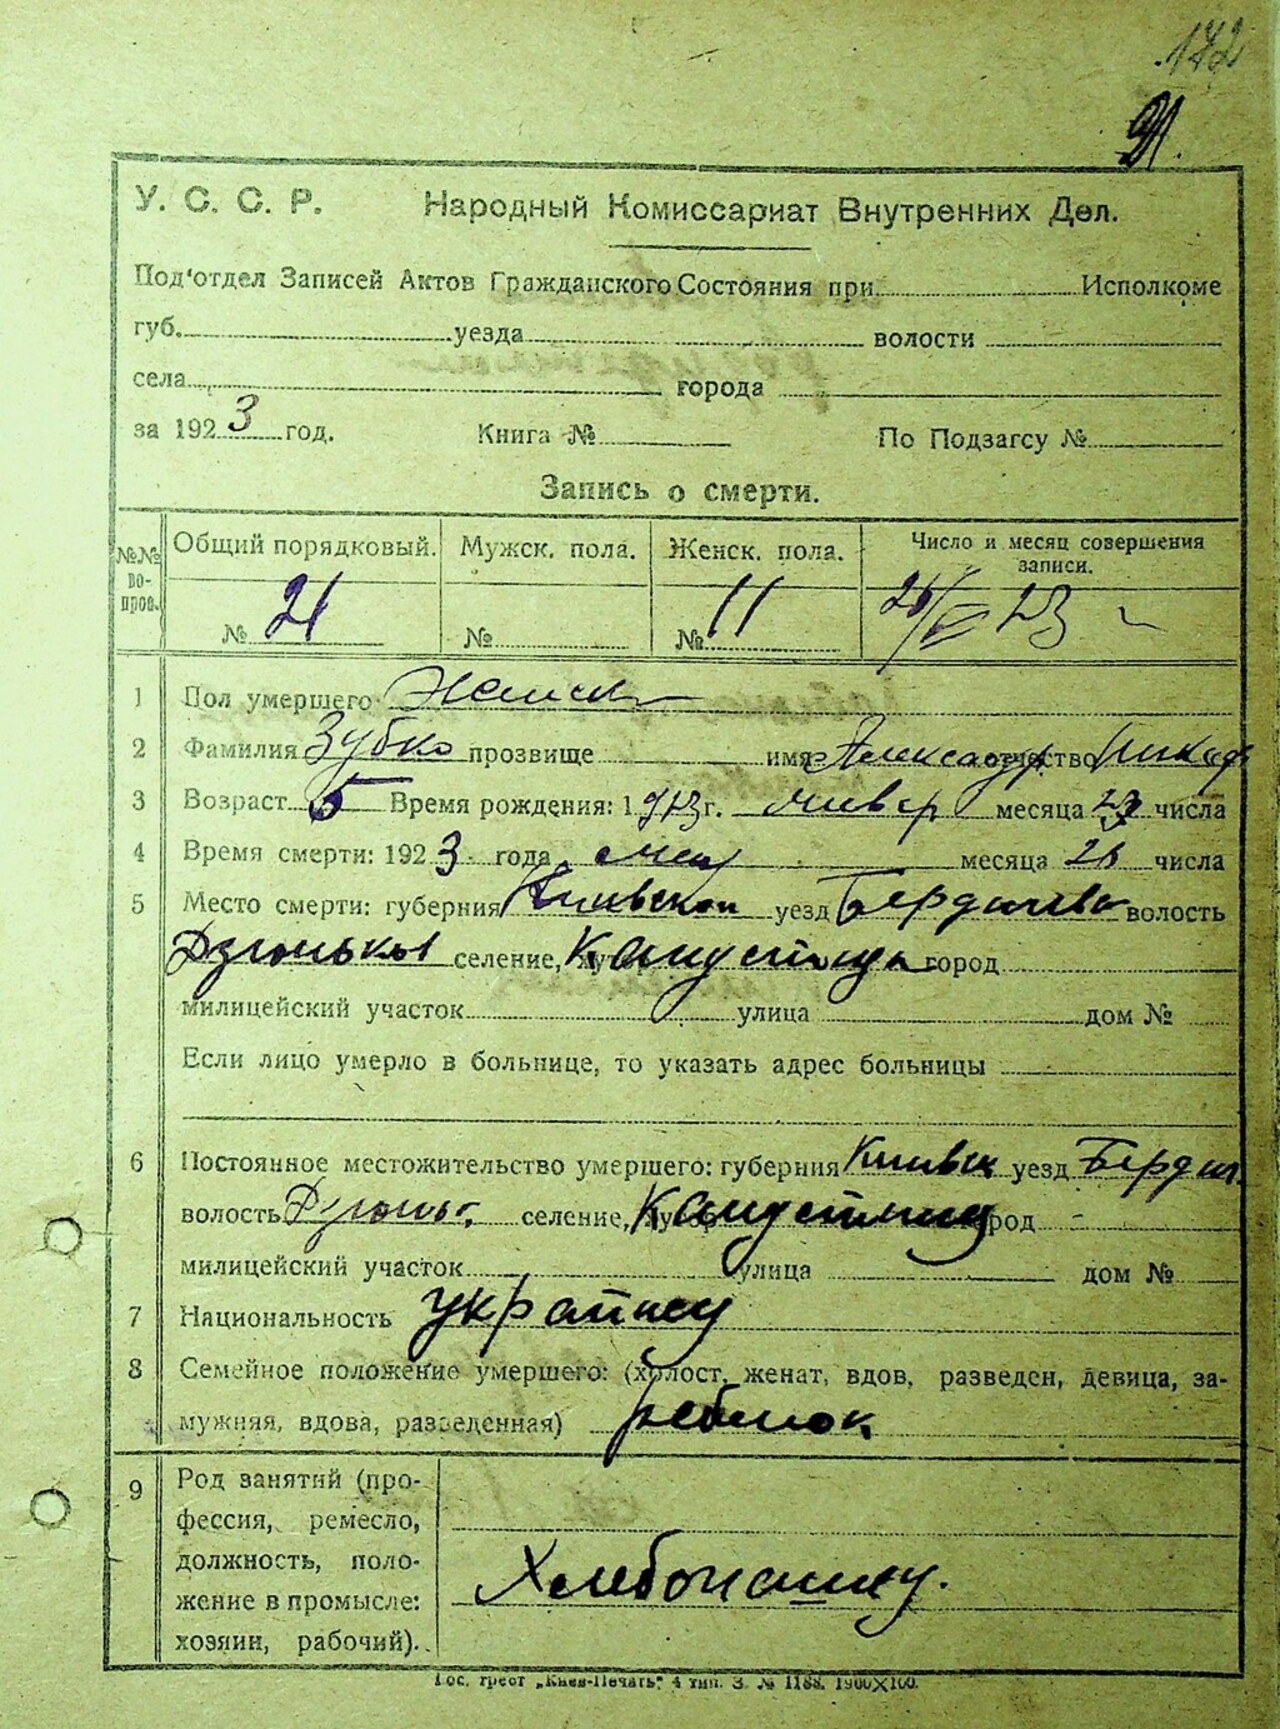 172
91.
У. С. С. Р. Народный Комиссариат Внутренних Дел.
Под'отдел Записей Актов Гражданского Состояния при Исполкоме
губ. уезда волости
села города
за 1923 год. Книга № По Подзагсу №
Запись о смерти.
№№ вопров. Общий порядковый. Мужск. пола. Женск. пола. Число и месяц совершения записи.
№ 21 № № 11 23
1 Пол умершего Женск
2 Фамилия Зубко прозвище имя Александр отчество
3 Возраст 5 Время рождения: 19 г. январ месяца 23 числа
4 Время смерти: 1923 года мая месяца 26 числа
5 Место смерти: губерния Киивской уезд Бердичев волость
Дзюньков селение, хутор город
милицейский участок улица дом №
Если лицо умерло в больнице, то указать адрес больницы
6 Постоянное местожительство умершего: губерния Киивск уезд Бердич.
волость Дзюньк. селение, хутор город -
милицейский участок улица дом №
7 Национальность
8 Семейное положение умершего: (холост, женат, вдов, разведен, девица, за-
мужняя, вдова, разведенная) ребенок
9 Род занятий (про-
фессия, ремесло,
должность, поло-
жение в промысле:
хозяин, рабочий).
Гос. трест „Киев-Печать" 4 тип. З. № 1188. 1900X100.